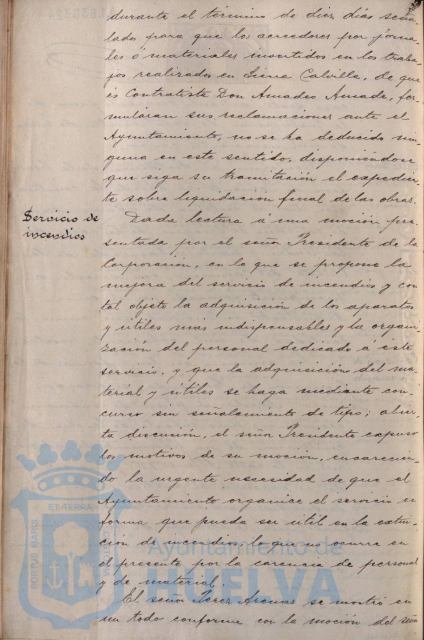 durante el término de diez días seña-
lados para que los acreedores por jorna-
les ó materiales invertidos en los traba-
jos realizados en Sierra Calvilla, de que
es Contratista Don Amadeo Amade, for-
mularan sus reclamaciones ante el
Ayuntamiento, no se ha deducido nin-
guna en este sentido, disponiéndose
que siga su tramitación el expedien-
te sobre liquidación final de las obras.
Servicio de
incendios
Dada lectura á una moción pre-
sentada por el señor Presidente de la
Corporación, en la que se propone la
mejora del servicio de incendios y con
tal objeto la adquisición de los aparatos
y útiles mas indispensables y la organi-
zación del personal dedicado á este
servicio, y que la adquisición del ma-
terial y útiles se haga mediante con-
curso sin señalamiento de tipo; abier-
ta discusión, el señor Presidente expuso
los motivos de su moción, encarecien-
do la urgente necesidad de que el
Ayuntamiento organice el servicio en
forma que pueda ser útil en la extin-
ción de incendios, lo que no ocurre en
el presente por la carencia de personal
y de material.
El señor Perez Asencio se mostró en
un todo conforme con la moción del señ
PORTUS MARIS
ET TERRAE
Ayuntamiento de
HUELVA